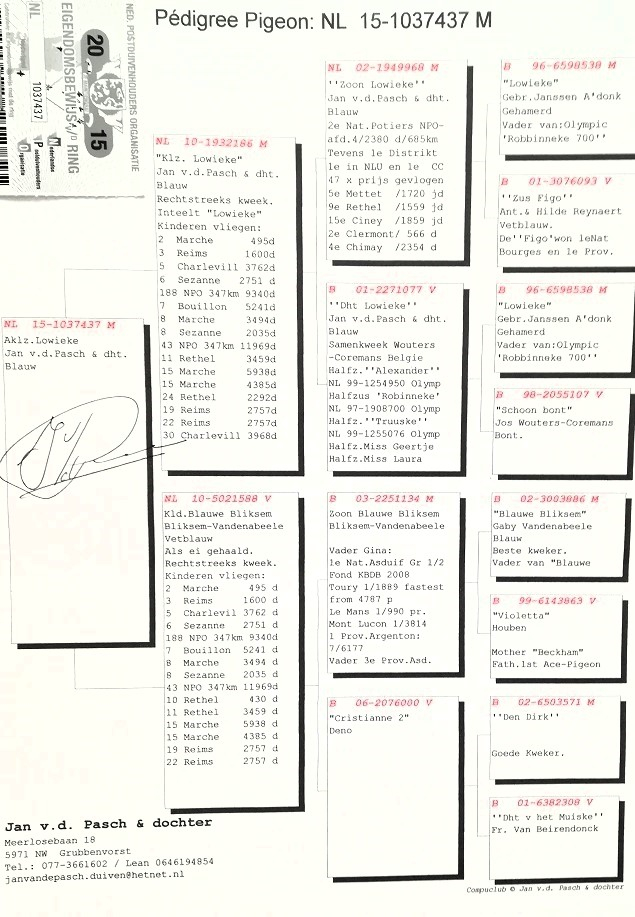 Pédigree Pigeon: NL 15-1037437 M
NED. POSTDUIVENHOUDERS ORGANISATIE
EIGENDOMSBEWIJS v/d RING
20 15
NL
1037437
Nederlandse
Postduivenhouders
Organisatie
NL 15-1037437 M
Aklz.Lowieke
Jan v.d.Pasch & dht.
Blauw
NL 10-1932186 M
"Klz. Lowieke"
Jan v.d.Pasch & dht.
Blauw
Rechtstreeks kweek.
Inteelt "Lowieke"
Kinderen vliegen:
2 Marche 495d
3 Reims 1600d
5 Charlevill 3762d
6 Sezanne 2751 d
188 NPO 347km 9340d
7 Bouillon 5241d
8 Marche 3494d
8 Sezanne 2035d
43 NPO 347km 11969d
11 Rethel 3459d
15 Marche 5938d
15 Marche 4385d
24 Rethel 2292d
19 Reims 2757d
22 Reims 2757d
30 Charlevill 3968d
NL 10-5021588 V
Kld.Blauwe Bliksem
Bliksem-Vandenabeele
Vetblauw
Als ei gehaald.
Rechtstreeks kweek.
Kinderen vliegen:
2 Marche 495 d
3 Reims 1600 d
5 Charlevil 3762 d
6 Sezanne 2751 d
188 NPO 347km 9340d
7 Bouillon 5241 d
8 Marche 3494 d
8 Sezanne 2035 d
43 NPO 347km 11969d
10 Rethel 430 d
11 Rethel 3459 d
15 Marche 5938 d
15 Marche 4385 d
19 Reims 2757 d
22 Reims 2757 d
NL 02-1949968 M
''Zoon Lowieke''
Jan v.d.Pasch & dht.
Blauw
2e Nat.Potiers NPO-
afd.4/2380 d/685km
Tevens 1e Distrikt
1e in NLU en 1e CC
47 x prijs gevlogen
5e Mettet /1720 jd
9e Rethel /1559 jd
15e Ciney /1859 jd
2e Clermont/ 566 d
4e Chimay /2354 d
B 01-2271077 V
''Dht Lowieke''
Jan v.d.Pasch & dht.
Blauw
Samenkweek Wouters
-Coremans Belgie
Halfz.''Alexander''
NL 99-1254950 Olymp
Halfzus 'Robinneke'
NL 97-1908700 Olymp
Halfz.''Truuske''
NL 99-1255076 Olymp
Halfz.Miss Geertje
Halfz.Miss Laura
B 03-2251134 M
Zoon Blauwe Bliksem
Bliksem-Vandenabeele
Vader Gina:
1e Nat.Asduif Gr 1/2
Fond KBDB 2008
Toury 1/1889 fastest
from 4787 p
Le Mans 1/990 pr.
Mont Lucon 1/3814
1 Prov.Argenton:
7/6177
Vader 3e Prov.Asd.
B 06-2076000 V
"Cristianne 2"
Deno
B 96-6598538 M
"Lowieke"
Gebr.Janssen A'donk
Gehamerd
Vader van:Olympic
'Robbinneke 700''
B 01-3076093 V
''Zus Figo''
Ant.& Hilde Reynaert
Vetblauw.
De''Figo'won 1eNat
Bourges en 1e Prov.
B 96-6598538 M
"Lowieke"
Gebr.Janssen A'donk
Gehamerd
Vader van:Olympic
'Robbinneke 700''
B 98-2055107 V
"Schoon bont"
Jos Wouters-Coremans
Bont.
B 02-3003886 M
"Blauwe Bliksem"
Gaby Vandenabeele
Blauw
Beste kweker.
Vader van "Blauwe
B 99-6143863 V
"Violetta"
Houben
Mother "Beckham"
Fath.1st Ace-Pigeon
B 02-6503571 M
''Den Dirk''
Goede Kweker.
B 01-6382308 V
''Dht v het Muiske''
Fr. Van Beirendonck
Jan v.d. Pasch & dochter
Meerlosebaan 18
5971 NW Grubbenvorst
Tel.: 077-3661602 / Lean 0646194854
janvandepasch.duiven@hetnet.nl
Compuclub © Jan v.d. Pasch & dochter